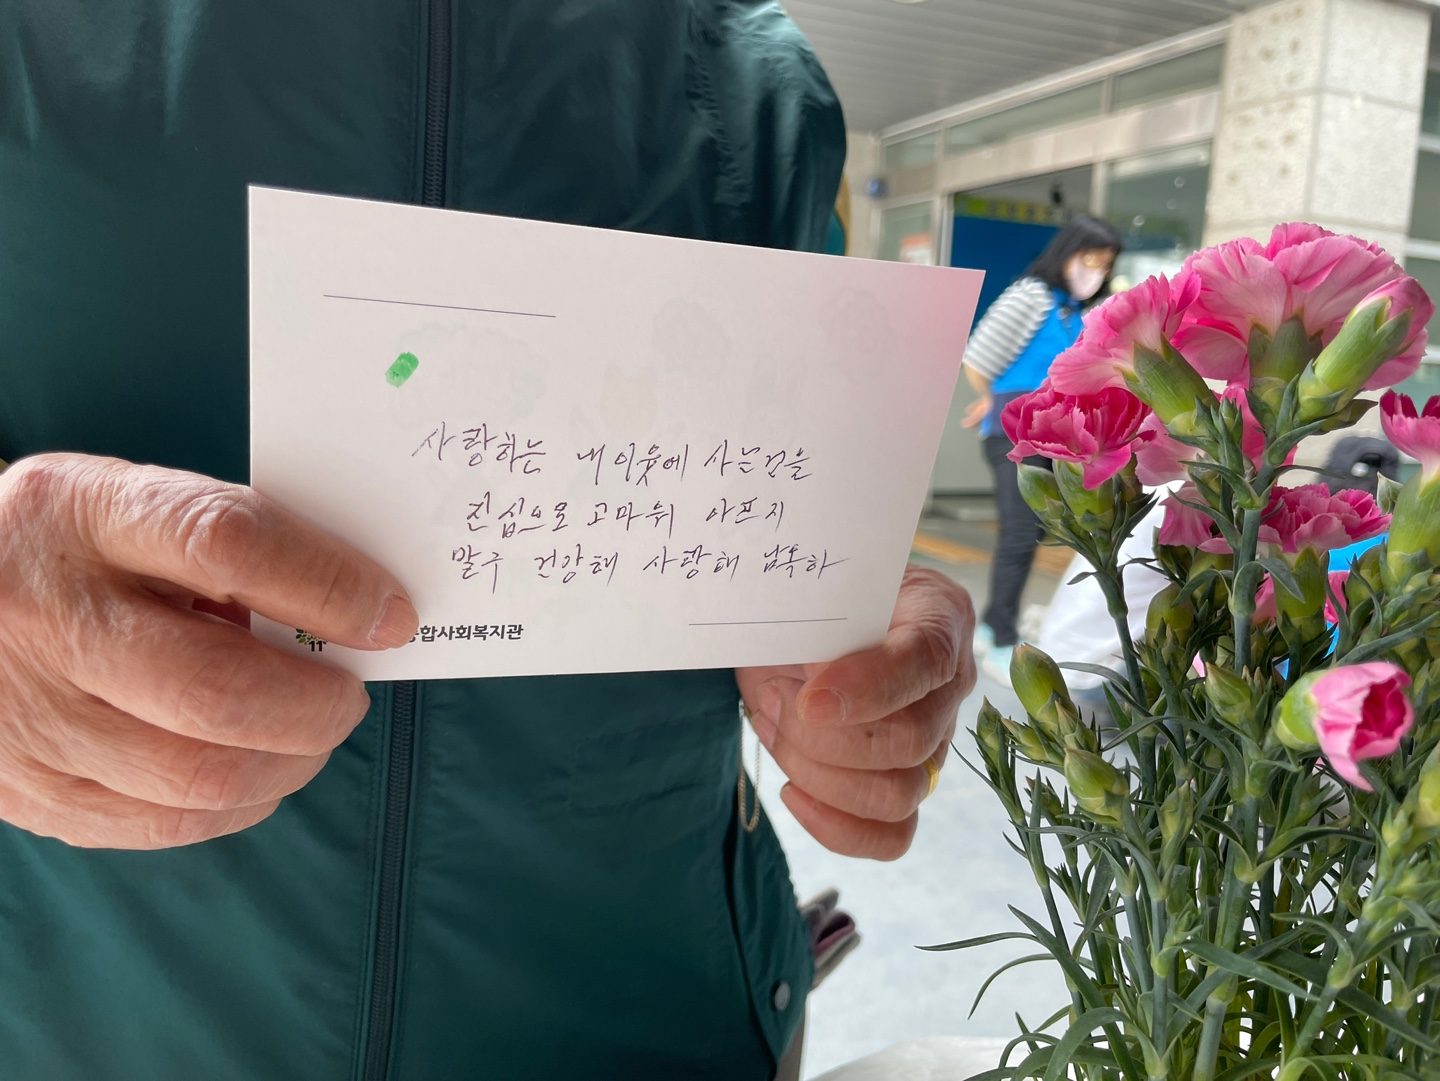 사랑하는 내 이웃에 사는것을
진심으로 고마워 아프지
말구 건강해 사랑해 남독하
합사회복지관